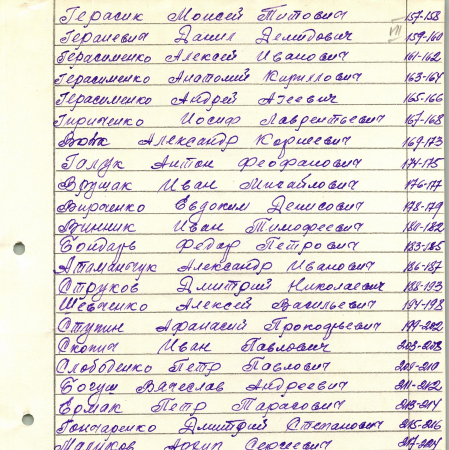 Герасик Моисей Титович 157-158
Гераневич Данил Демидович 159-160
Герасименко Алексей Иванович 161-162
Герасименко Анатолий Кириллович 163-164
Герасименко Андрей Агеевич 165-166
Гириченко Иосиф Лаврентьевич 167-168
Вовк Александр Корнеевич 169-173
Галук Антон Феофанович 174-175
Врущак Иван Михайлович 176-177
Вираченко Евдоким Денисович 178-179
Винник Иван Тимофеевич 180-182
Бондарь Федор Петрович 183-185
Атаманчук Александр Иванович 186-187
Струков Дмитрий Николаевич 188-193
Шевченко Алексей Васильевич 194-198
Ступин Афанасий Прокофьевич 199-202
Скопич Иван Павлович 203-208
Слободенко Петр Павлович 209-210
Богуш Вячеслав Андреевич 211-212
Ермак Петр Тарасович 213-214
Гончаренко Дмитрий Степанович 215-216
Сергеевич 217-224